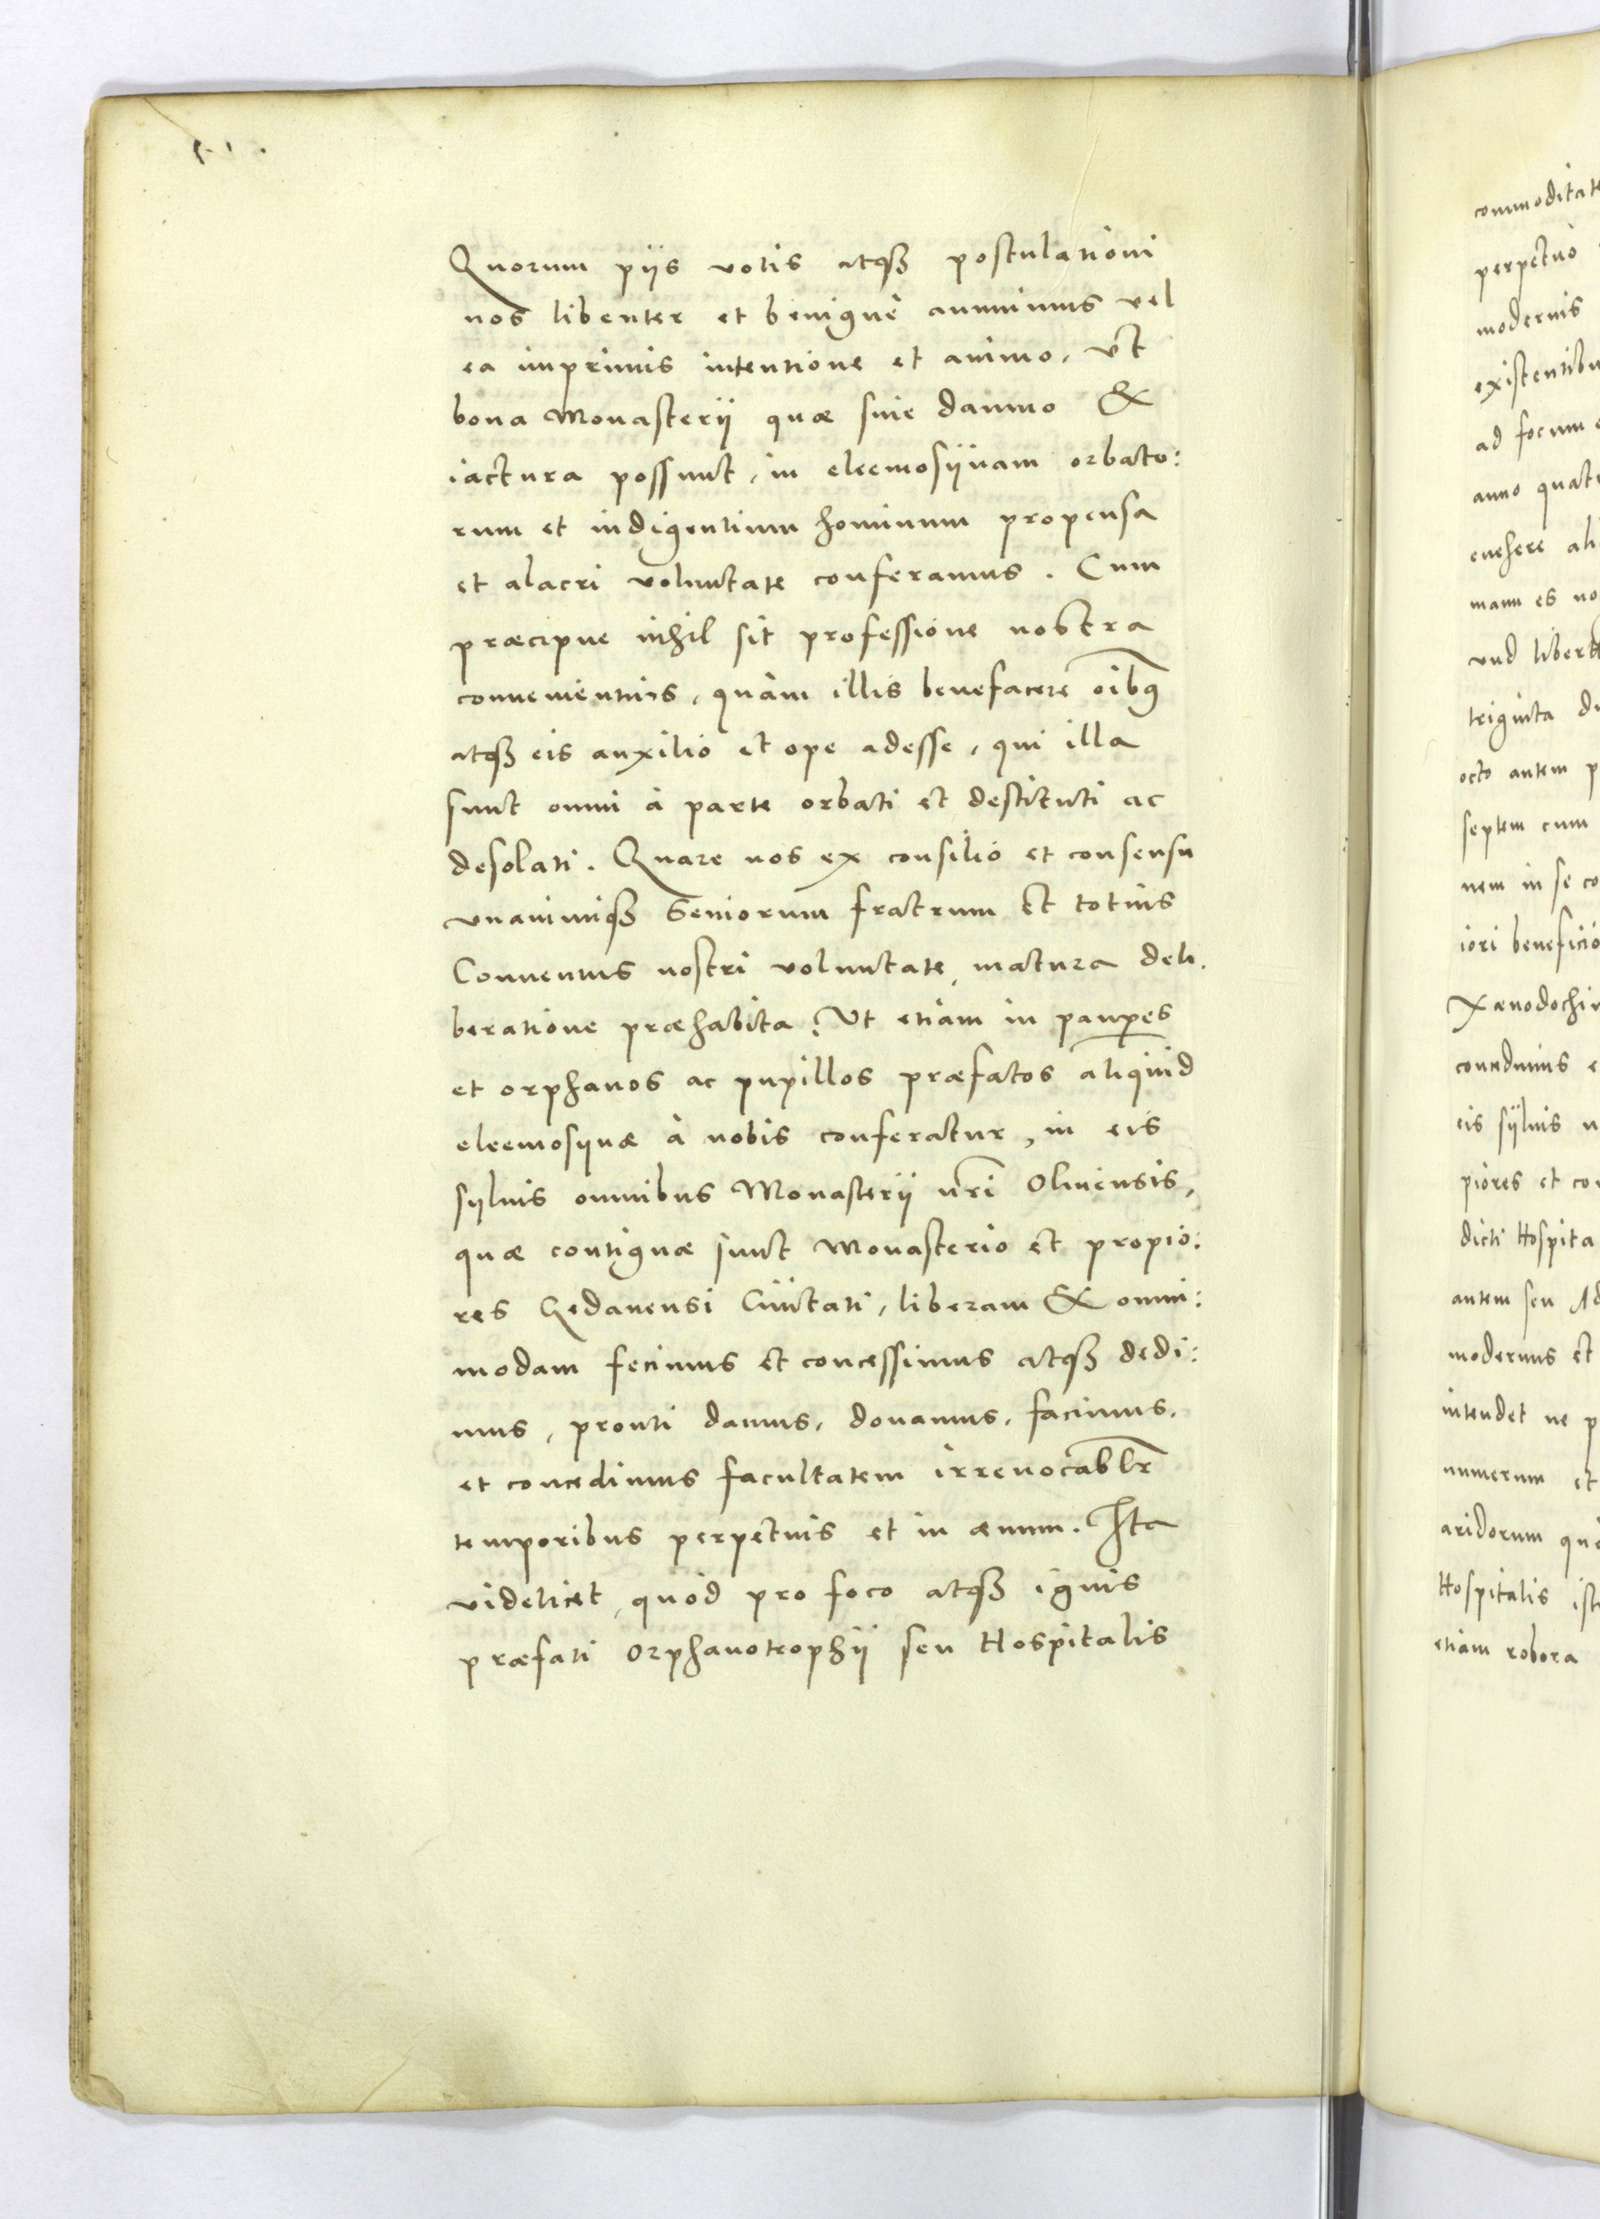 Quorum piis votis atq3 postulationi
nos libenter et benignè annuimus vel
ea imprimis intentione et animo, vt
bona Monasterij quæ sine damno &
iactura possunt, in eleemosijnam orbato:
rum et indigentium hominum propensa
et alacri voluntate conferamus. Cum
præcipue nihil sit professione nostra
conuenientius, quàm illis benefacere oībq
atq3 eis auxilio et ope adesse, qui illa
sunt omni à parte orbati et destituti ac
desolati. Quare nos ex consilio et consensu
vnanimiq3 Seniorum fratrum et totius
Conuentus nostri voluntate, matura deli.
beratione præhabita: Ut etiam in paup̱es
et orphanos ac pupillos præfatos aliquid
eleemosijnæ à nobis conferatur, in eis
sijluis omnibus Monasterij nr̄i Oliuensis,
quæ contiguæ sunt Monasterio et propio:
res Gedanensi Ciuitati, liberam & omni:
modam fecimus et concessimus atq3 dedi:
mus, prouti damus, donamus, facimus,
et concedimus facultatem irreuocabl̄r
temporibus perpetuis et in æuum. Ita
videlicet, quòd pro foco atq3 ignis
præfati Orphanotrophij seu Hospitalis
commoditate
perpetuo
modernis
existentibu
ad focum e
anno quatu
euehere ali
mann es no
vnd libert
triginta du
octo autem p
septem cum
nem in se co
iori beneficio
Xænodochi
concedimus e
eis sijluis n
piores et con
dicti Hospita
autem seu Ad
modernus et
intendet ne p
numerum et
aridorum quæ
Hospitalis ist
etiam robora